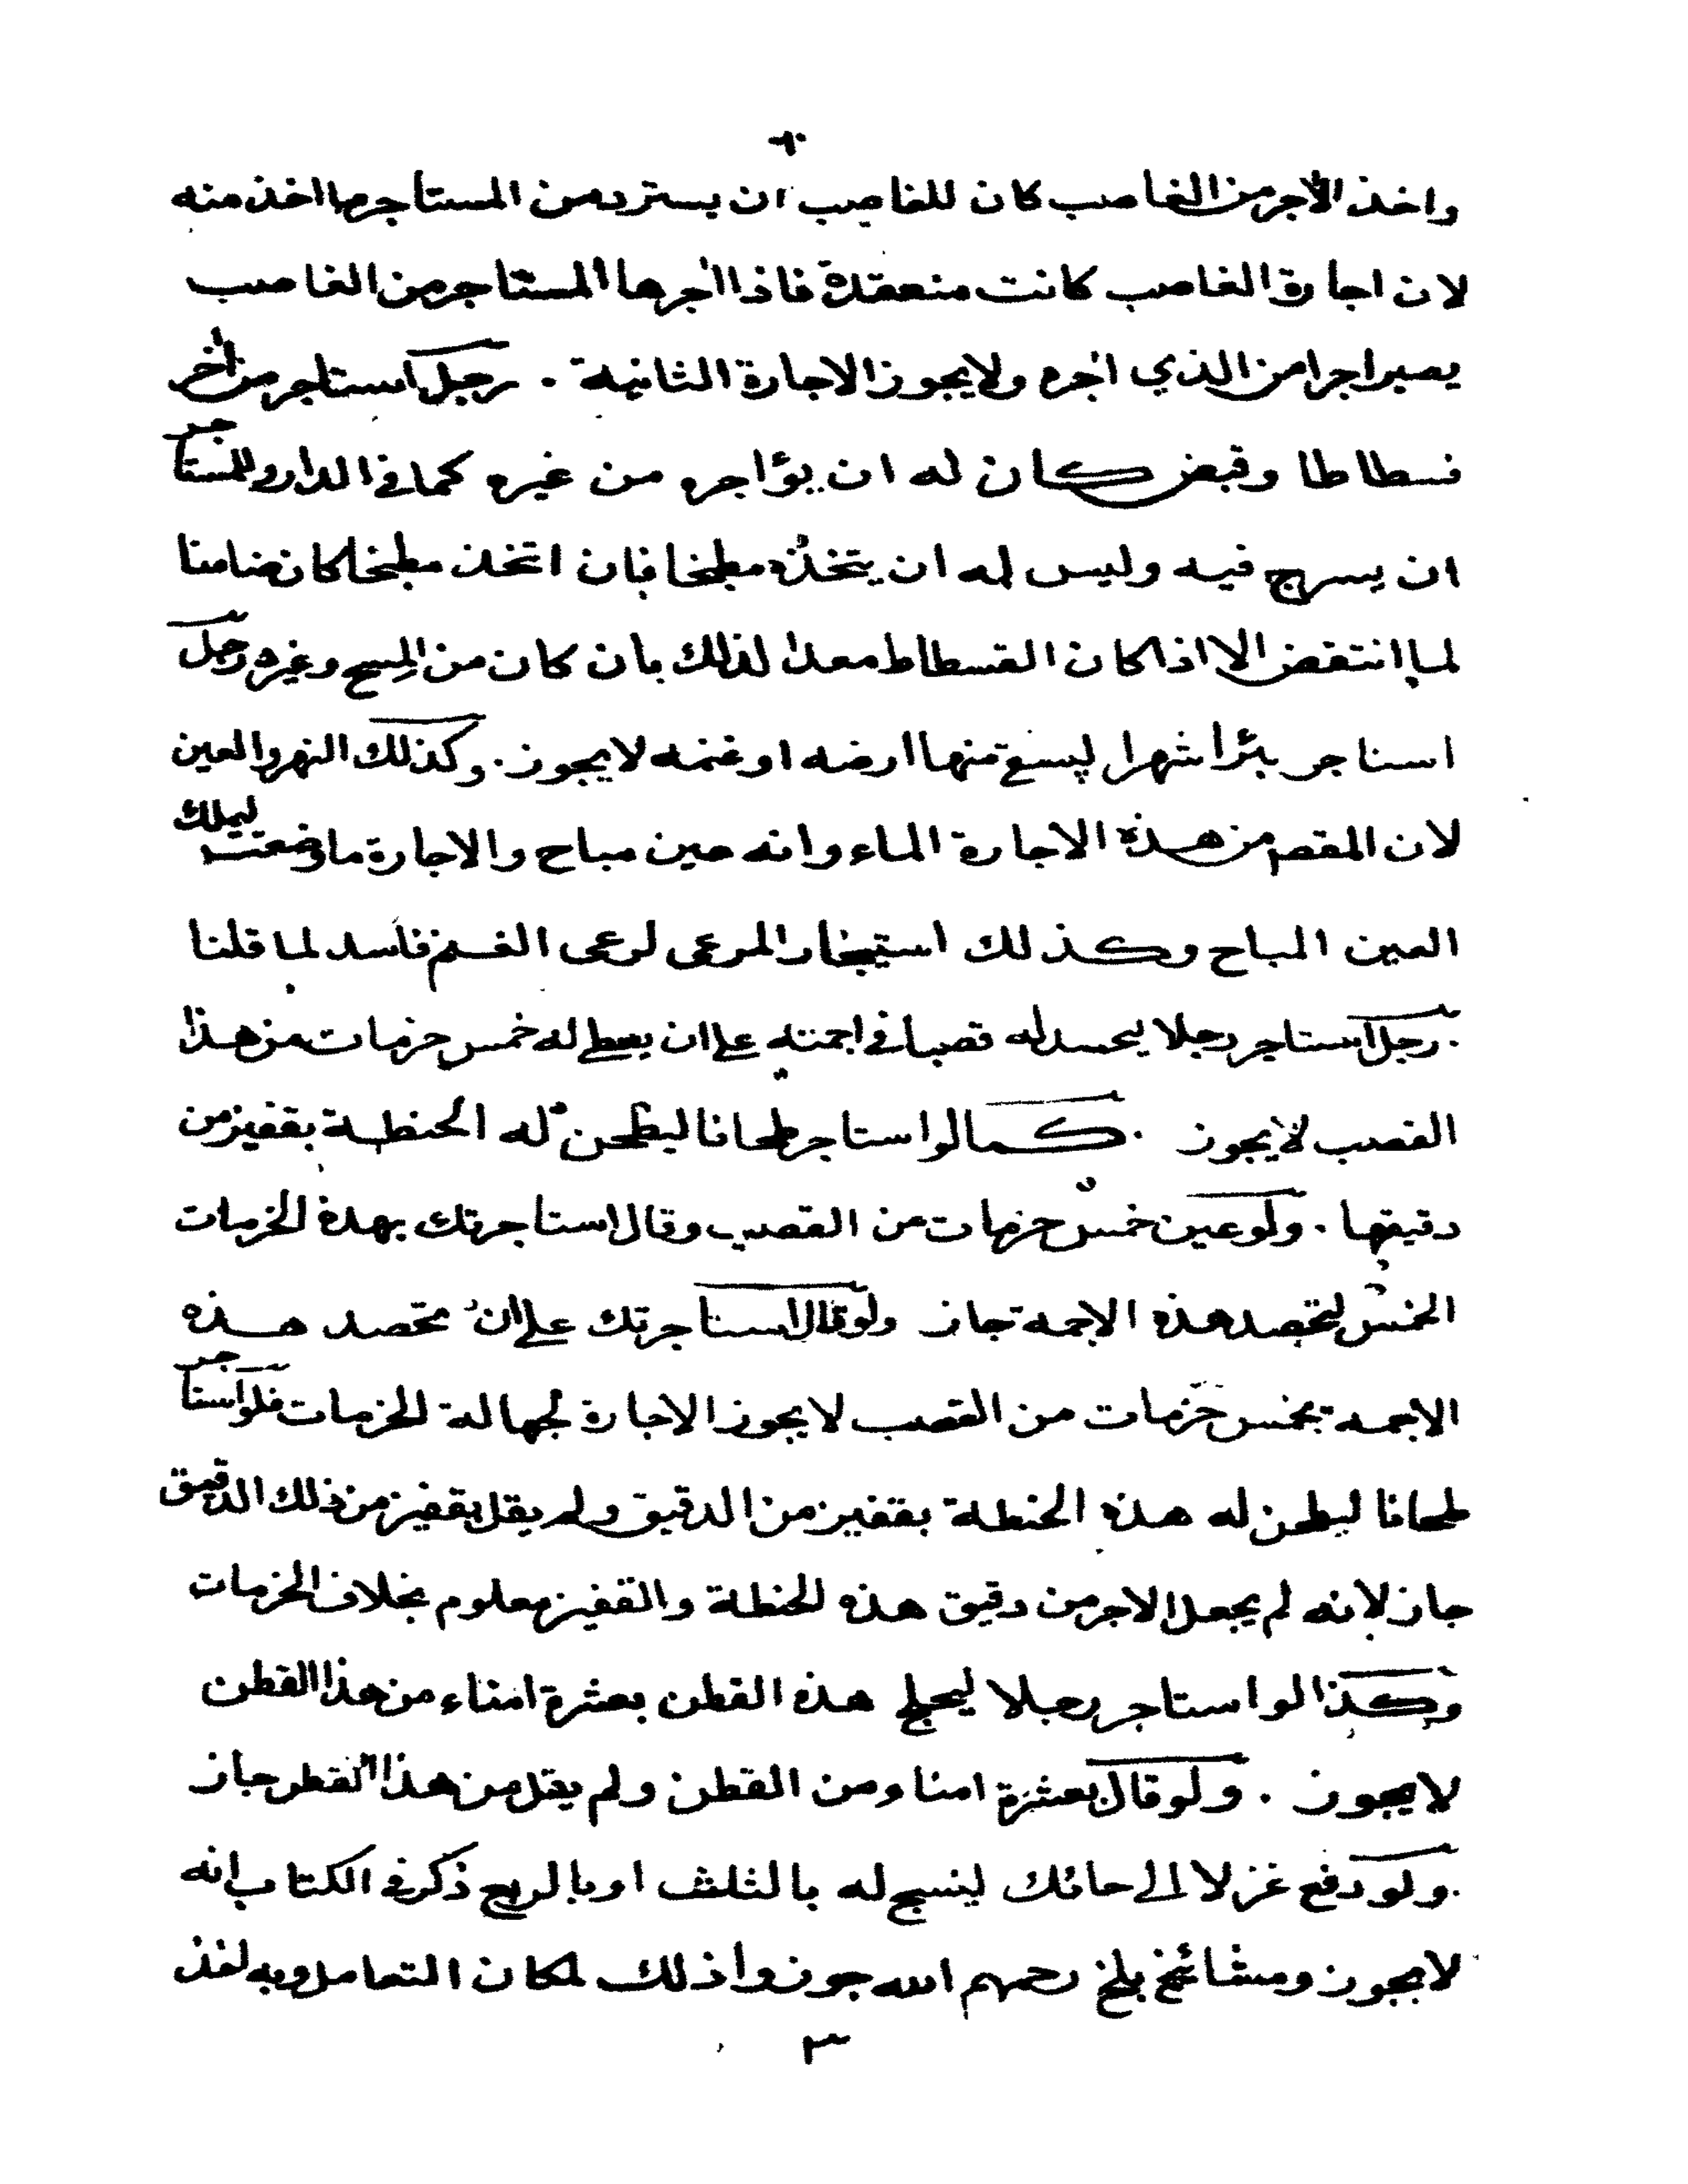 واخذ الاجر من الغاصب كان للغاصب ان يسترد من المستاجر ما اخذ منه
لان اجارة الغاصب كانت منعقدة فاذا اجرها المستاجر من الغاصب
يصير اجرا من الذي اجره ولا يجوز الاجارة الثانية . رجل استاجر من اخر
فسطاطا وقبض كان له ان يؤاجره من غيره كما في الدار وللمستاجر
ان يسرج فيه وليس له ان يتخذه مطبخا فان اتخذ مطبخا كان ضامنا
لما انتقض الا اذا كان الفسطاط معدا لذلك بان كان من المسح وغيره رجل
استاجر بئرا شهرا ليسقي منها ارضه او غنمه لا يجوز . وكذلك النهر والعين
لان المقصم من هذه الاجارة الماء وانه عين مباح والاجارة ما وضعت ليملك
العين المباح وكذلك استيجار المرعى لرعى الغنم فاسد لما قلنا
. رجل استاجر رجلا ليحصد له قصبا في اجمته على ان يعطى له خمس حزمات من هذا
القصب لا يجوز . كما لو استاجر طحانا ليطحن له الحنطة بقفيز من
دقيقها . ولو عين خمس حزمات من القصب وقال استاجرتك بهذه الحزمات
الخمس لتحصد هذه الاجمة جاز ولو قال استاجرتك على ان تحصد هذه
الاجمة بخمس حزمات من القصب لا يجوز الاجارة لجهالة الحزمات فلو استاجر
طحانا ليطحن له هذه الحنطة بقفيز من الدقيق ولم يقل بقفيز من ذلك الدقيق
جاز لانه لم يجعل الاجر من دقيق هذه الحنطة والقفيز معلوم بخلاف الحزمات
وكذا لو استاجر رجلا ليحلج هذه القطن بعشرة امناء من هذا القطن
لا يجوز . ولو قال بعشرة امناء من القطن ولم يقل من هذا القطن جاز
. ولو دفع غزلا الى حائك لينسج له بالثلث او بالربع ذكر في الكتاب انه
لا يجوز ومشائخ بلخ رحمهم الله جوزوا ذلك لمكان التعامل وبه اخذ
٣